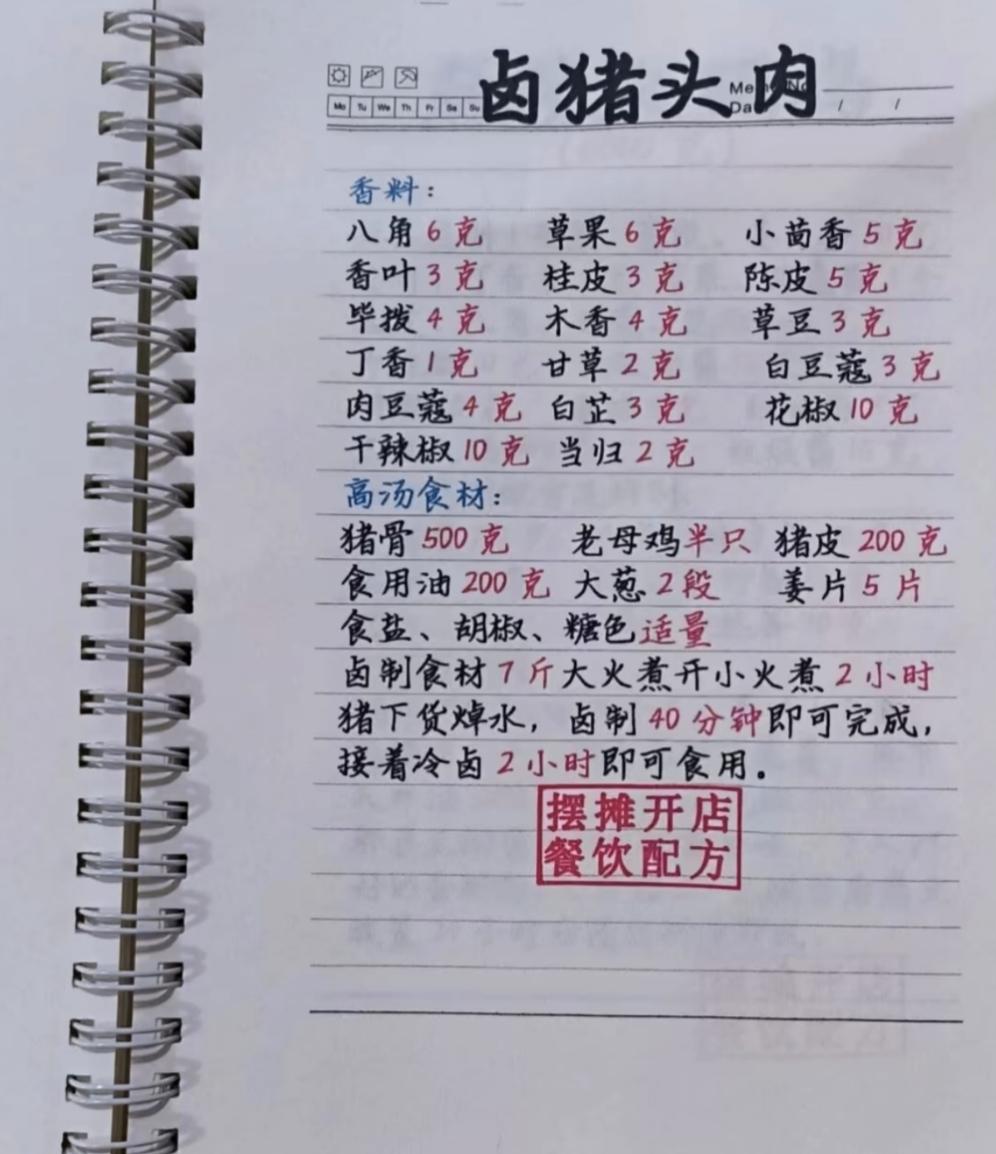 卤猪头肉
Mo Tu We Th Fr Sa Su
香料：
八角6克 草果6克 小茴香5克
香叶3克 桂皮3克 陈皮5克
毕拨4克 木香4克 草豆3克
丁香1克 甘草2克 白豆蔻3克
肉豆蔻4克 白芷3克 花椒10克
干辣椒10克 当归2克
高汤食材：
猪骨500克 老母鸡半只 猪皮200克
食用油200克 大葱2段 姜片5片
食盐、胡椒、糖色适量
卤制食材7斤大火煮开小火煮2小时
猪下货焯水，卤制40分钟即可完成，
接着冷卤2小时即可食用。
摆摊开店
餐饮配方